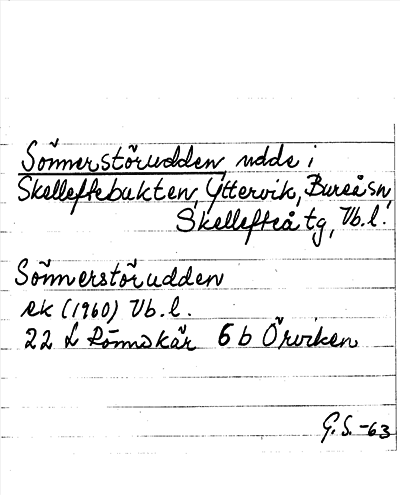 Sönnerstörudden, udde i
Skelleftebukten, Yttervik, Bureå sn,
Skellefteå tg, Vb.l.
Sönnerstörudden
ek (1960) Vb.l.
22 L Rönnskär 6b Örviken
G.S. -63